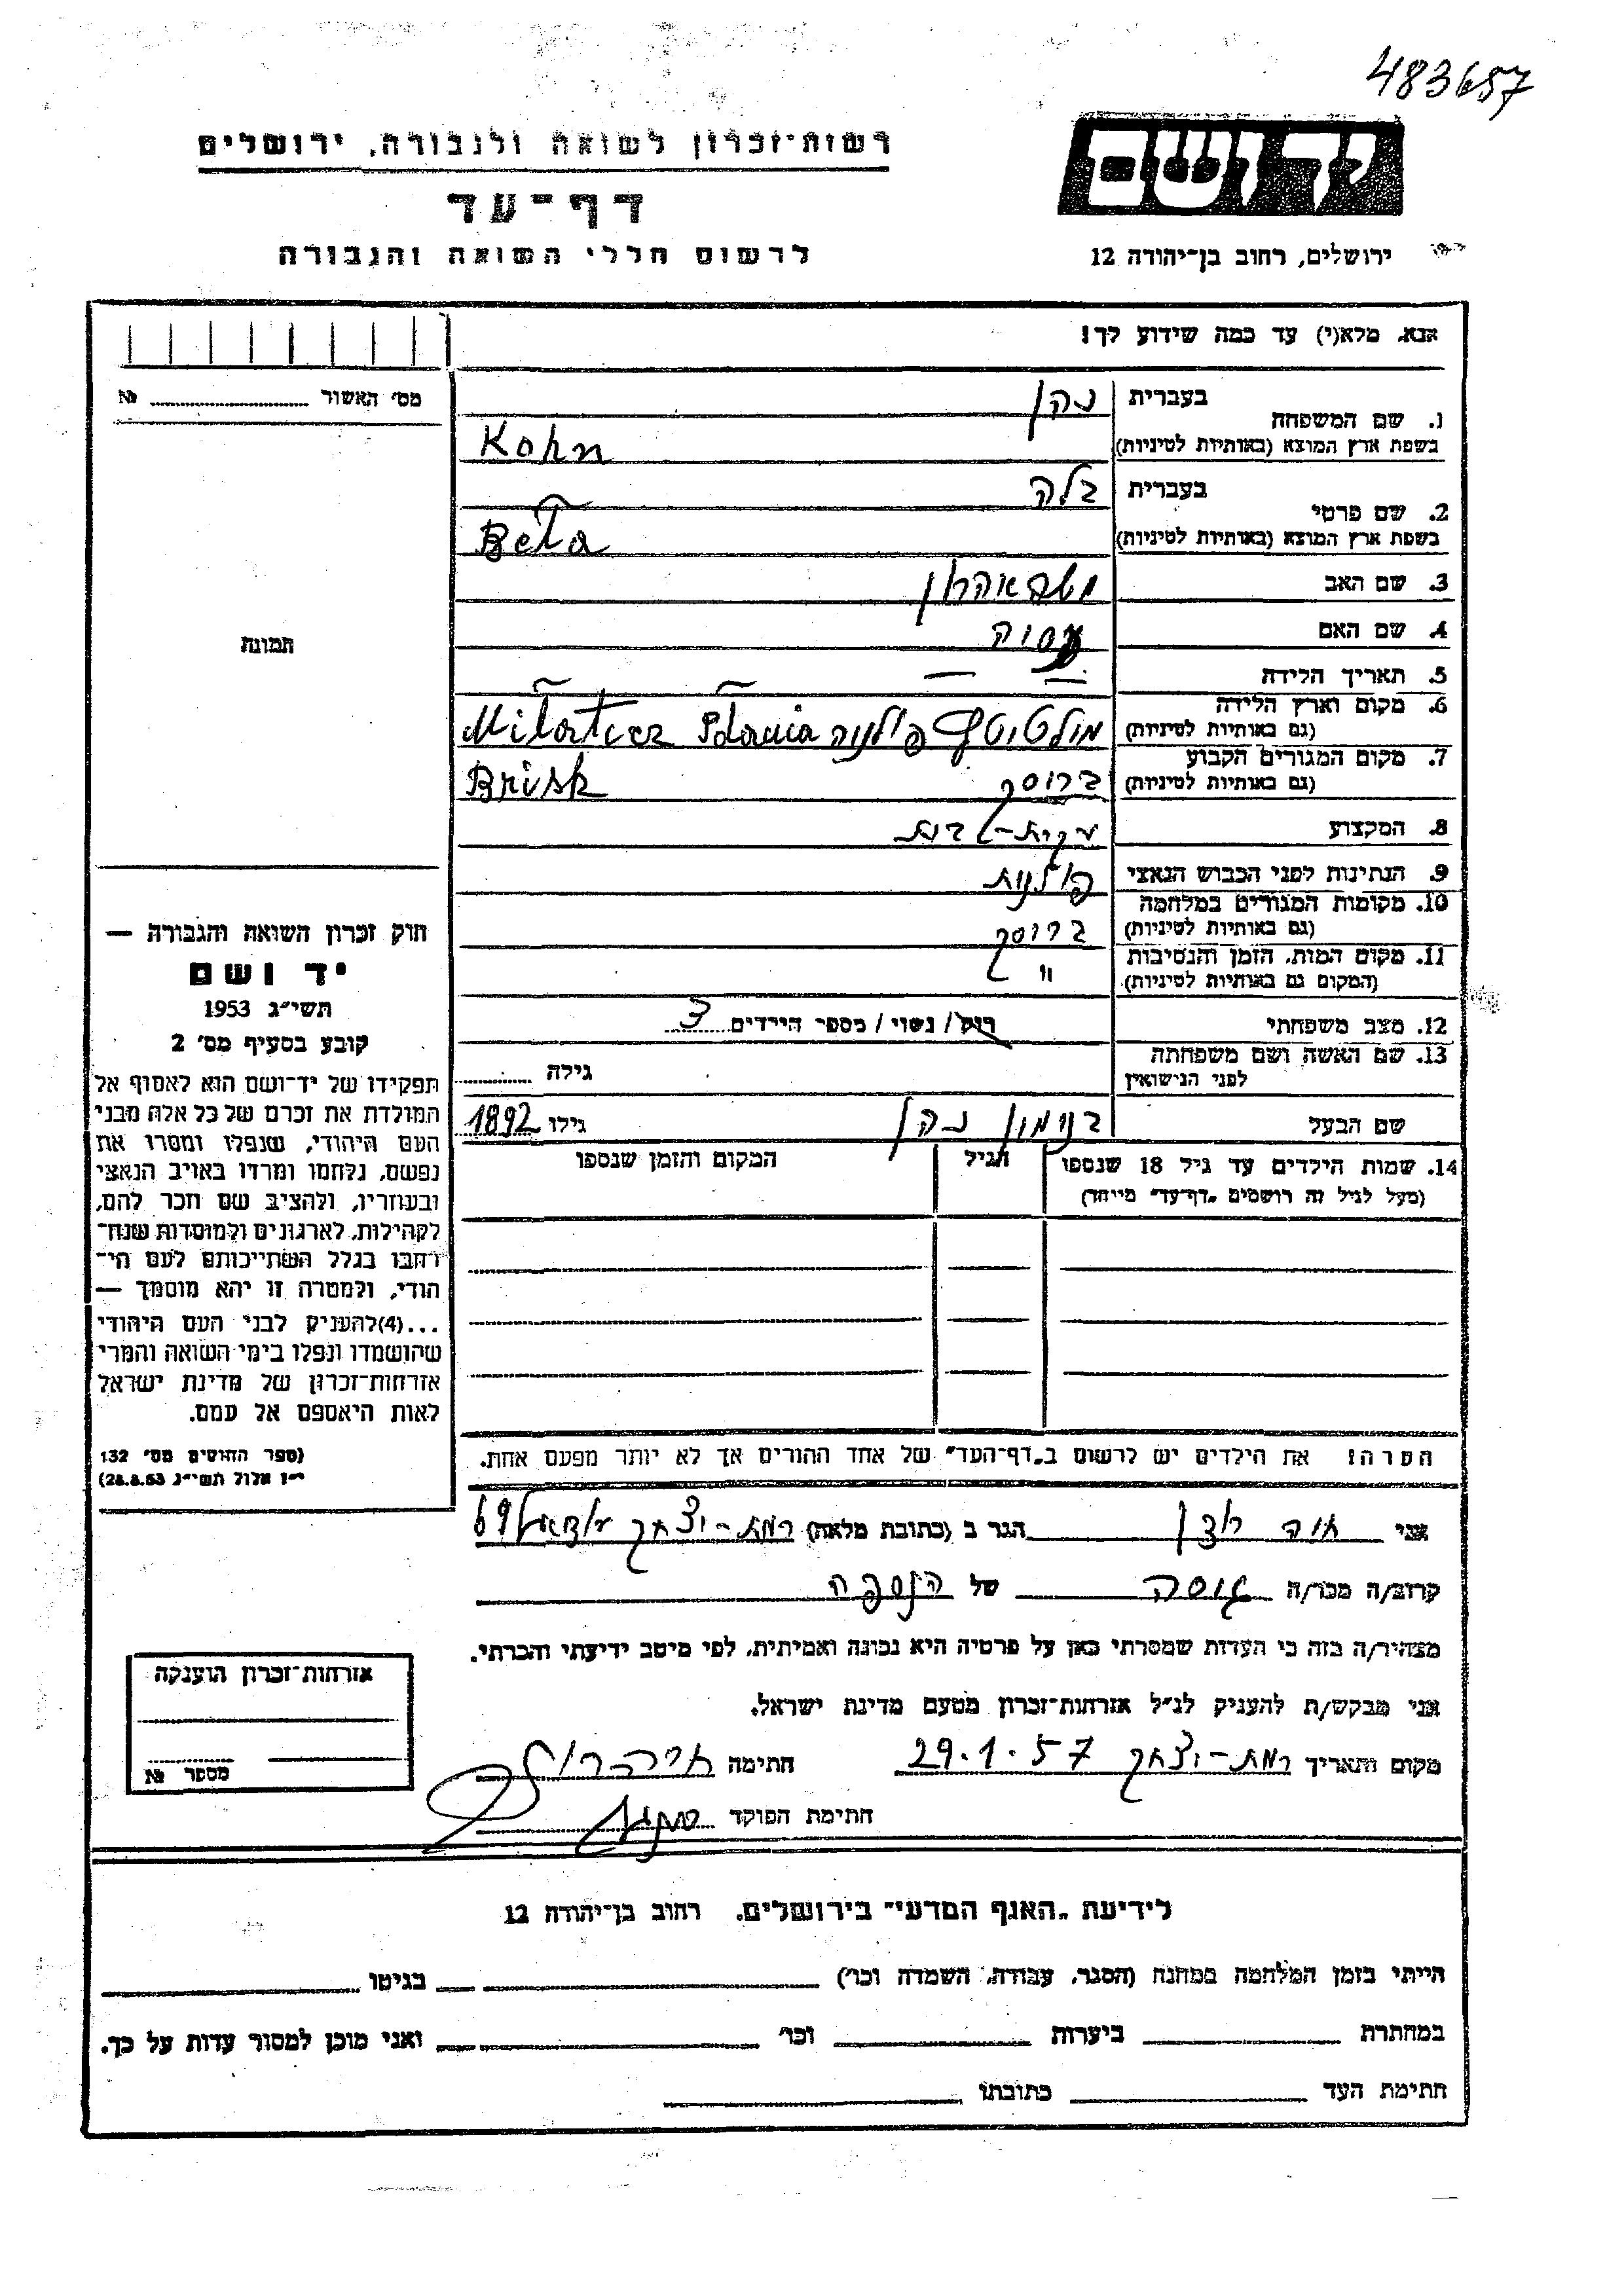 483657
רשות־זכרון לשואה ולגבורה, ירושלים
יד ושם
דף־עד
לרשום חללי השואה והגבורה
ירושלים, רחוב בן־יהודה 12
אנא, מלא(י) עד כמה שידוע לך!
מס׳ האשור № 
1. שם המשפחה
בעברית כהן
בשפת ארץ המוצא (באותיות לטיניות) Kohn
2. שם פרטי
בעברית בלה
בשפת ארץ המוצא (באותיות לטיניות) Bela
3. שם האב אהרון
4. שם האם
5. תאריך הלידה — —
6. מקום וארץ הלידה
(גם באותיות לטיניות) פולניה
7. מקום המגורים הקבוע
(גם באותיות לטיניות) בריסק Brisk
8. המקצוע עקרת-בית
9. הנתינות לפני הכבוש הנאצי פולנית
10. מקומות המגורים במלחמה
(גם באותיות לטיניות) בריסק
11. מקום המות, הזמן והנסיבות
(המקום גם באותיות לטיניות) "
12. מצב משפחתי רווק / נשוי / מספר הילדים 3
13. שם האשה ושם משפחתה
לפני הנישואין גילה
שם הבעל בנימין כהן גילו 1892
14. שמות הילדים עד גיל 18 שנספו
(מעל לגיל זה רושמים „דף־עד״ מיוחד)
הגיל
המקום והזמן שנספו
הערה: את הילדים יש לרשום ב„דף־העד״ של אחד ההורים אך לא יותר מפעם אחת.
תמונה
חוק זכרון השואה והגבורה —
יד ושם
תשי״ג 1953
קובע בסעיף מס׳ 2
תפקידו של יד־ושם הוא לאסוף אל
המולדת את זכרם של כל אלה מבני
העם היהודי, שנפלו ומסרו את
נפשם, נלחמו ומרדו באויב הנאצי
ובעוזריו, ולהציב שם וזכר להם,
לקהילות, לארגונים ולמוסדות שנח־
רבו בגלל השתייכותם לעם הי־
הודי, ולמטרה זו יהא מוסמך —
...(4)להעניק לבני העם היהודי
שהושמדו ונפלו בימי השואה והמרי
אזרחות־זכרון של מדינת ישראל
לאות היאספם אל עמם.
(ספר החוקים מס׳ 132
י״ז אלול תשי״ג 28.8.53)
אני חוה הגר ב (כתובת מלאה) רמת-יצחק 69
קרוב/ה מכר/ה גיסה של הנספה
מצהיר/ה בזה כי העדות שמסרתי כאן על פרטיה היא נכונה ואמיתית, לפי מיטב ידיעתי והכרתי.
אני מבקש/ת להעניק לנ״ל אזרחות־זכרון מטעם מדינת ישראל.
מקום ותאריך רמת-יצחק 29.1.57 חתימה
חתימת הפוקד
אזרחות־זכרון הוענקה
מספר №
לידיעת „האגף המדעי״ בירושלים, רחוב בן־יהודה 12
הייתי בזמן המלחמה במחנה (הסגר, עבודה, השמדה וכו׳) בגיטו
במחתרת ביערות וכו׳ ואני מוכן למסור עדות על כך.
חתימת העד כתובתו